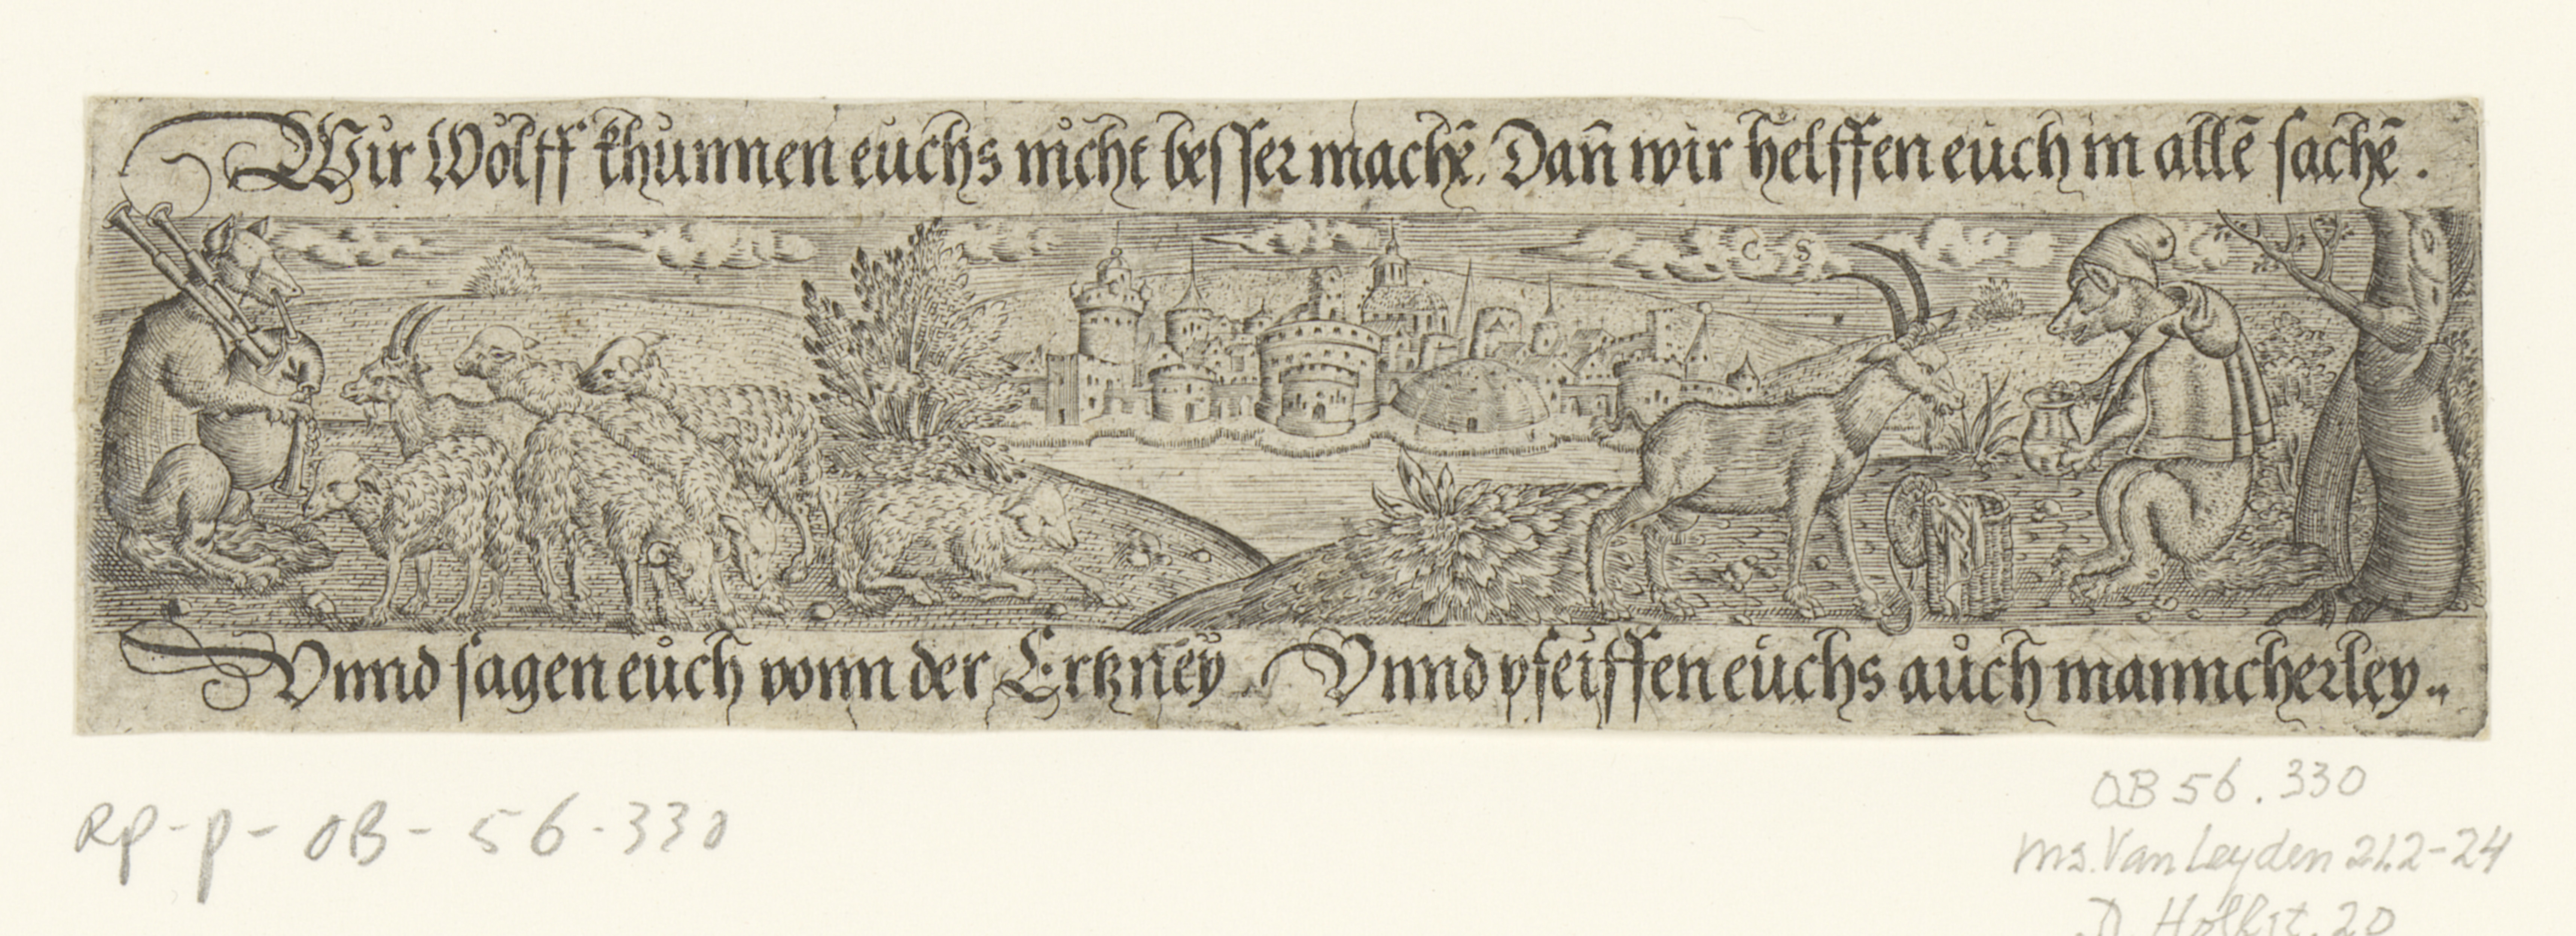 Wir Wölff khünnen eüchs nicht besser machē. Dañ wir helffen eüch in allē sachē.
C S
Vnnd sagen eüch vonn der Ertzney. Vnnd pfeiffen eüchs aüch manncherley..
RP-P-OB-56-330
OB 56.330
ms. Van Leyden 212-24
D. Hollst. 20